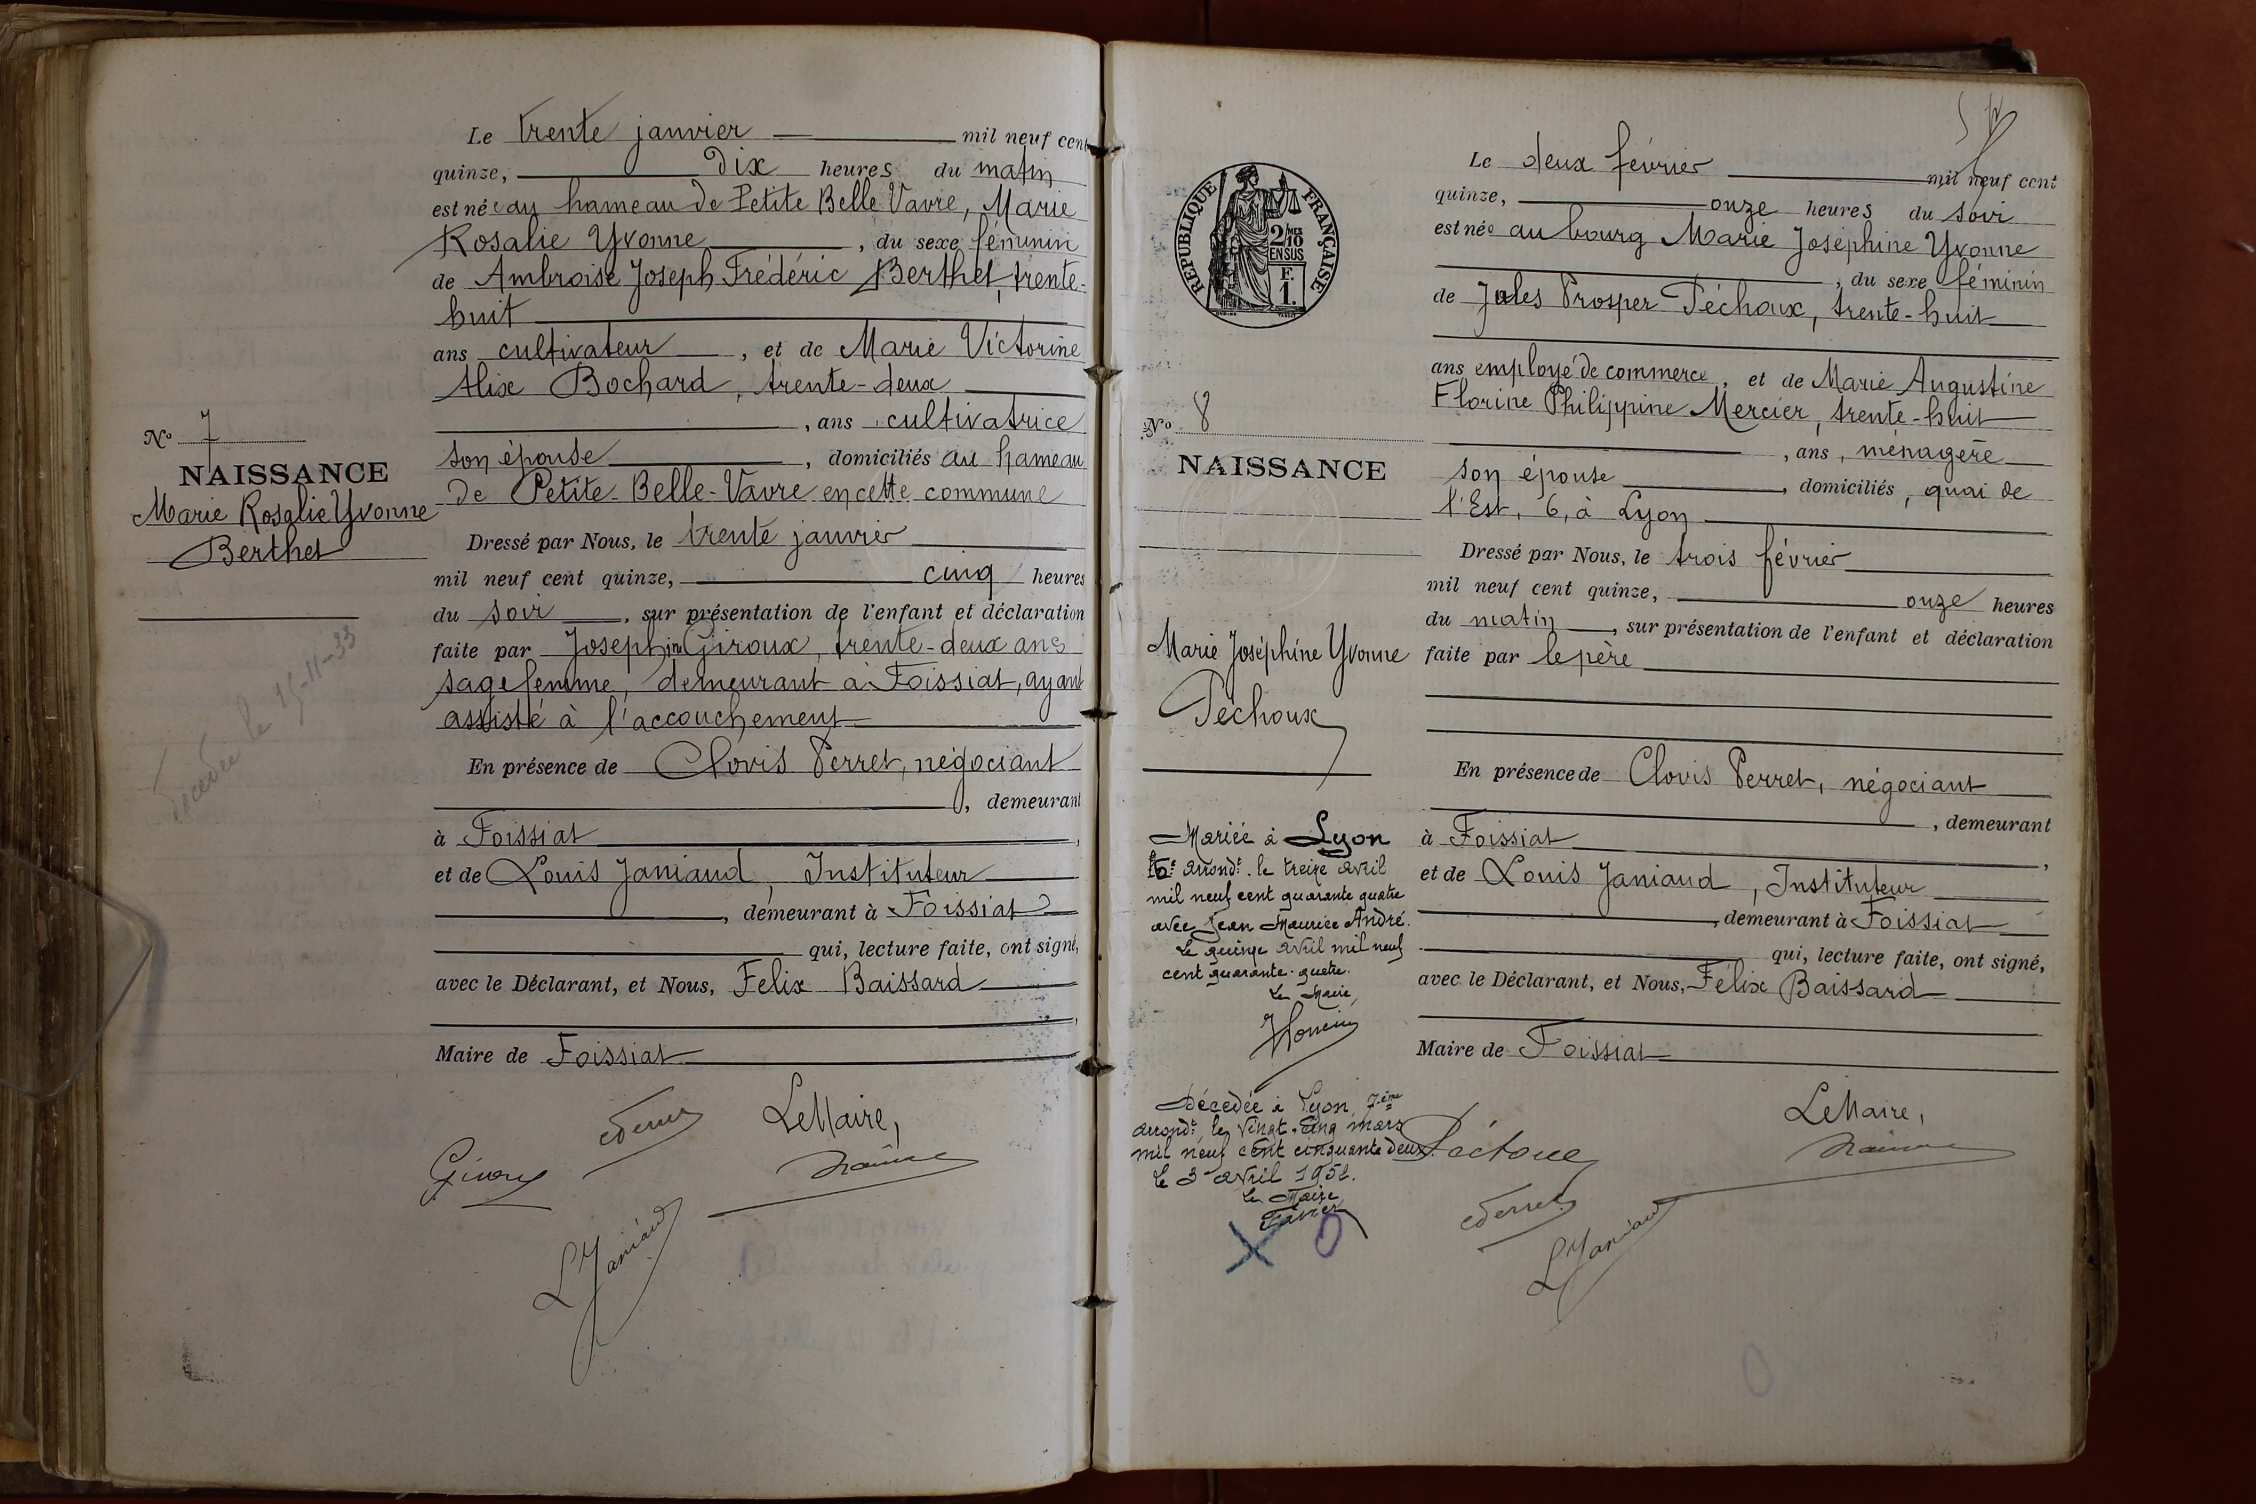 Le trente janvier mil neuf cent
quinze, dix heures du matin
est née au hameau de Petite Belle Vavre, Marie
Rosalie Yvonne, du sexe féminin
de Ambroise Joseph Frédéric Berthet, trente-
huit
ans cultivateur, et de Marie Victorine
Alix Bochard, trente-deux
, ans cultivatrice
son épouse, domiciliés au hameau
de Petite-Belle-Vavre en cette commune
Dressé par Nous, le trente janvier
mil neuf cent quinze, cinq heures
du soir, sur présentation de l'enfant et déclaration
faite par Joséphine Giroux, trente-deux ans
sage femme, demeurant à Foissiat, ayant
assisté à l'accouchement
En présence de Clovis Perret, négociant
, demeurant
à Foissiat,
et de Louis Janiaud, Instituteur
, demeurant à Foissiat
qui, lecture faite, ont signé,
avec le Déclarant, et Nous, Félix Baissard
Maire de Foissiat
Le Maire,
Giroux
L Janiaud
No 7
NAISSANCE
Marie Rosalie Yvonne
Berthet
Décédée le 15-11-33
RÉPUBLIQUE FRANÇAISE
2/10 EN SUS
F. 1.
No 8
NAISSANCE
Marie Joséphine Yvonne
Péchoux
Mariée à Lyon
6e arrondt. le treize avril
mil neuf cent quarante quatre
avec Jean Maurice André.
Le quinze avril mil neuf
cent quarante-quatre.
Le Maire,
Décédée à Lyon 7ème
arrondt, le vingt-cinq mars
mil neuf cent cinquante deux.
Le 3 avril 1952.
Le Maire,
Favier
Le deux février mil neuf cent
quinze, onze heures du soir
est née au bourg Marie Joséphine Yvonne
, du sexe féminin
de Jules Prosper Péchoux, trente-huit
ans employé de commerce, et de Marie Augustine
Florine Philippine Mercier, trente-huit
, ans, ménagère
son épouse, domiciliés, quai de
l'Est, 6, à Lyon
Dressé par Nous, le trois février
mil neuf cent quinze, onze heures
du matin, sur présentation de l'enfant et déclaration
faite par le père
En présence de Clovis Perret, négociant
, demeurant
à Foissiat,
et de Louis Janiaud, Instituteur
, demeurant à Foissiat
qui, lecture faite, ont signé,
avec le Déclarant, et Nous, Félix Baissard
Maire de Foissiat
Le Maire,
Péchoux
L Janiaud